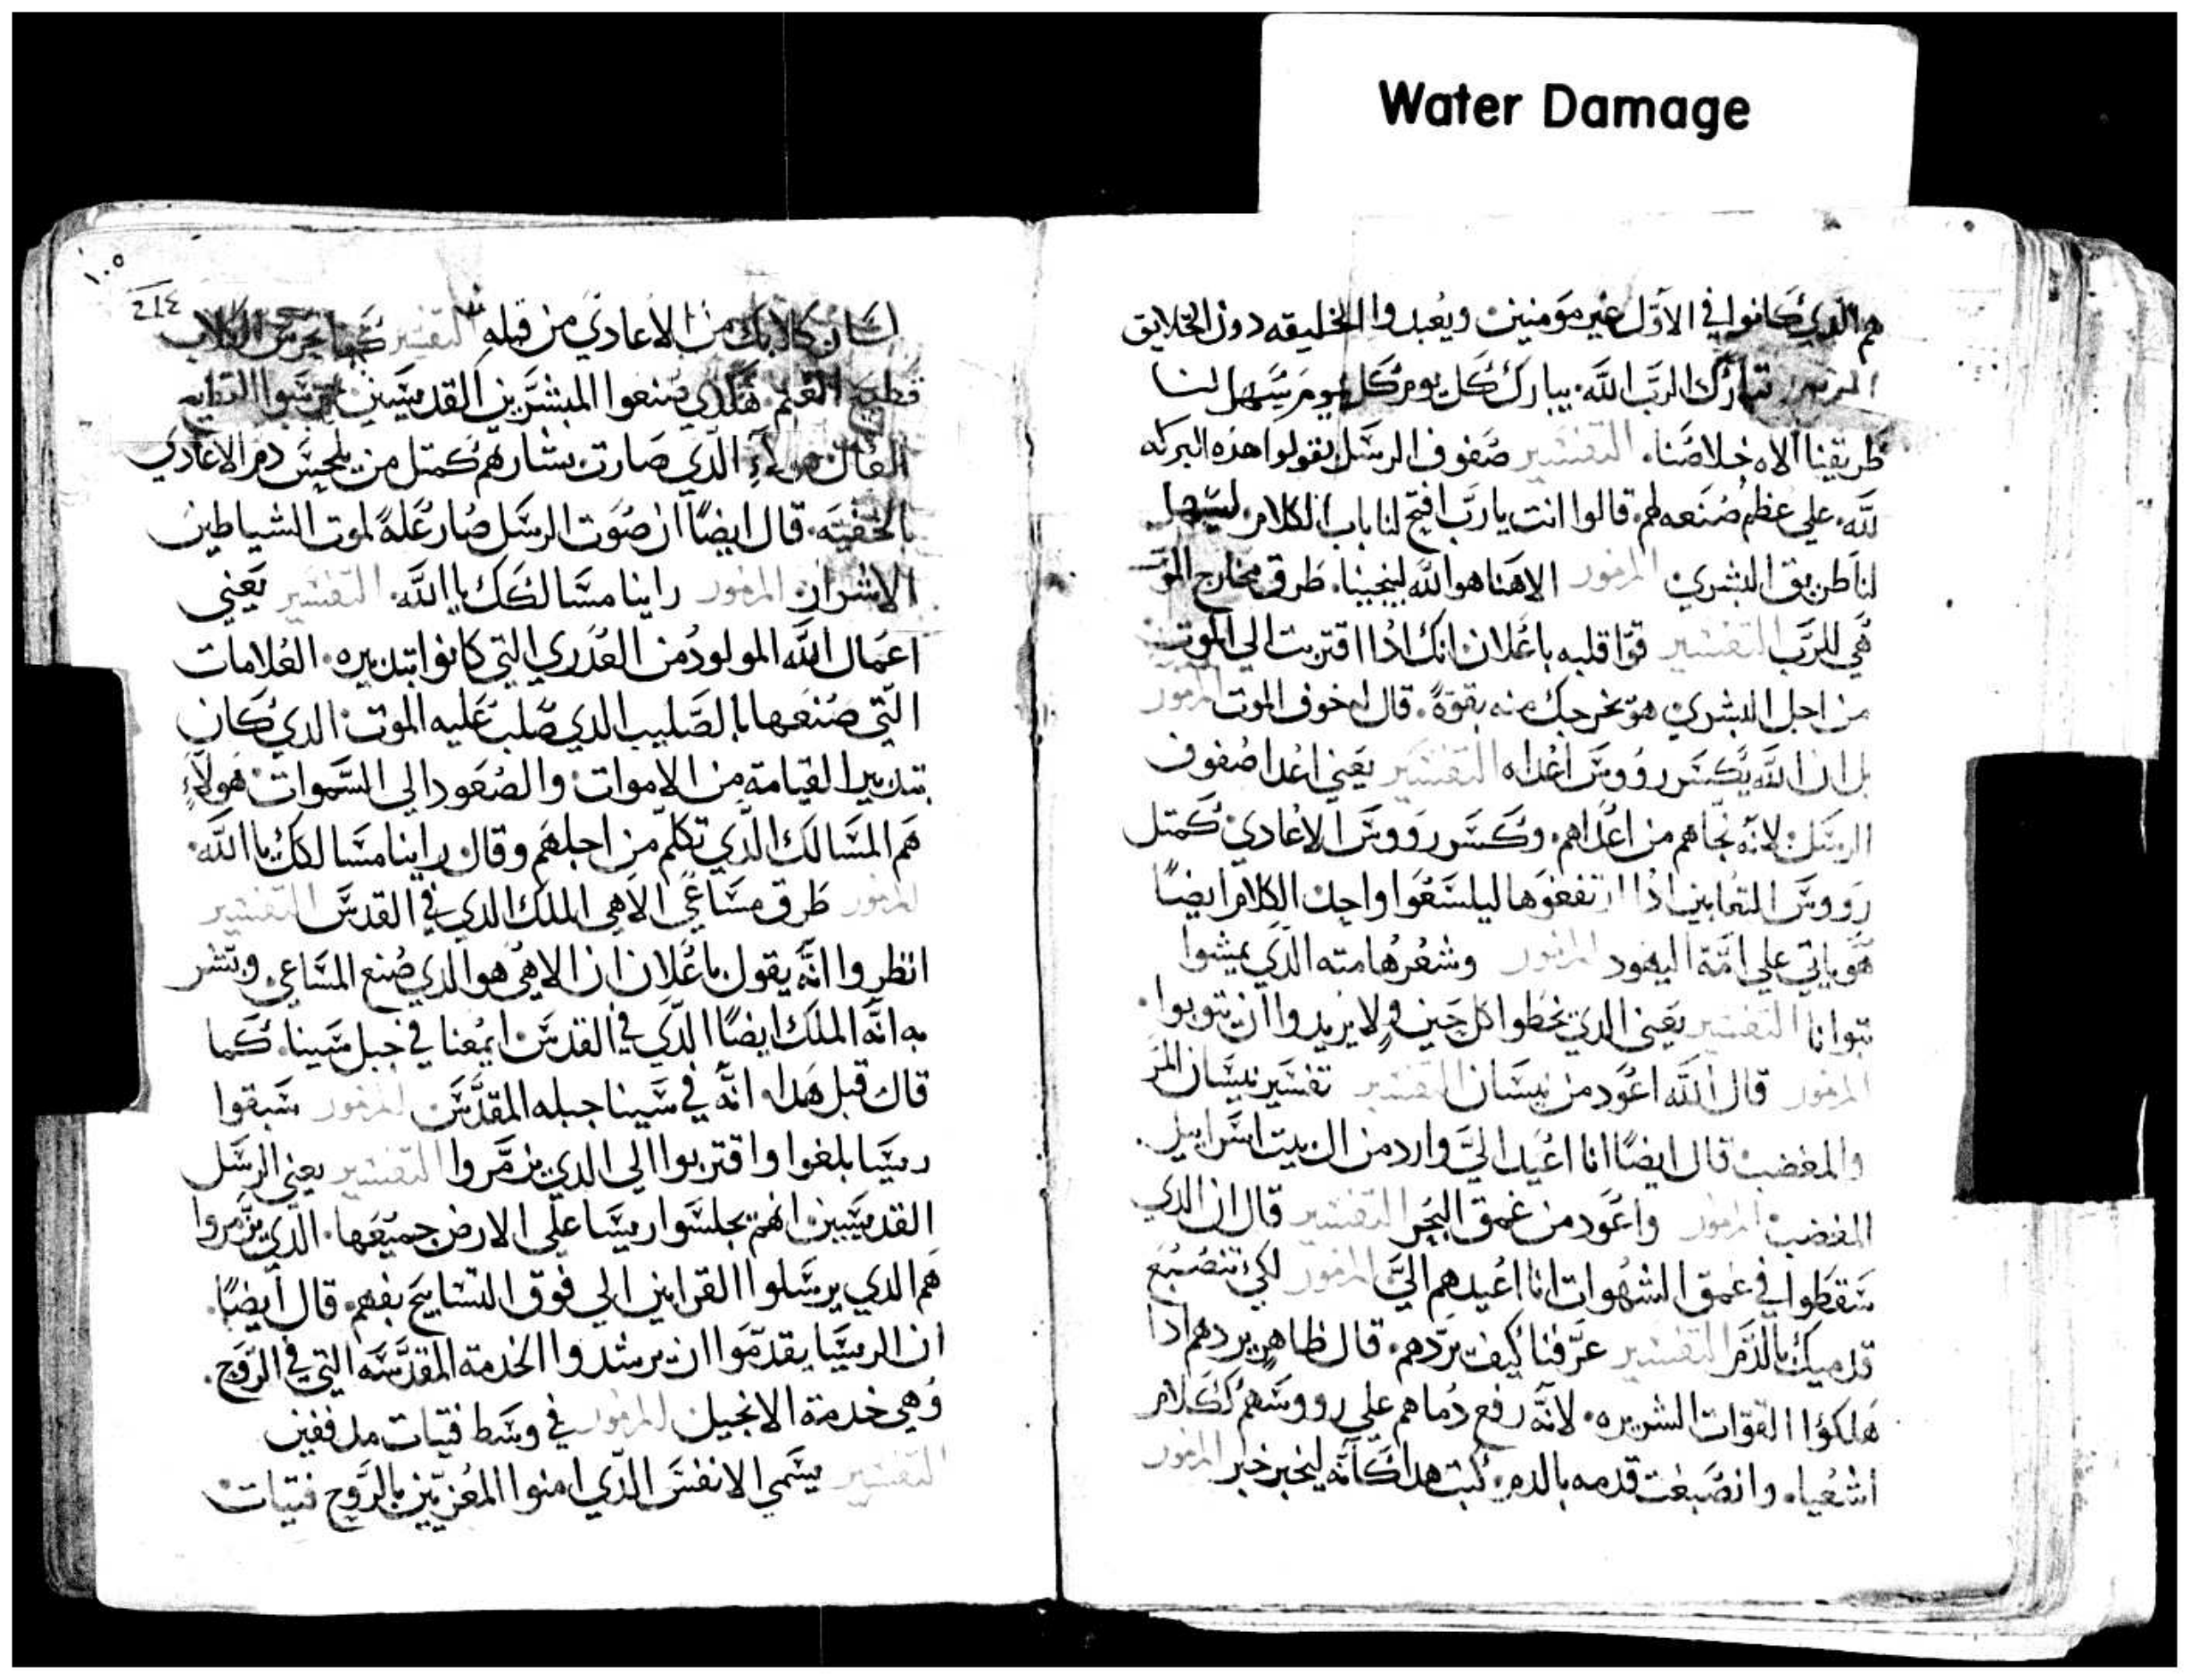 Water Damage
هم الذي كانوا في الاوّل غير مومنين ويعبدوا الخليقه دون الخالق
المزمور تبارك الربّ اللّه يبارك كل يوم كل يوم يسهل لنا
طريقنا الاه خلاصنا. التفسير صفوف الرسل يقولوا هذه البركه
للّه. علي عظم صنعه لهم. قالوا انت يا ربّ افتح لنا باب الكلام. ليسهل
لنا طريق البشري المزمور الاهنا هو اللّه لينجينا. طرق مخارج الموت
هي للرّب التفسير قوّا قلبه باعلان انك اذا اقتربت الي الموت
من اجل البشري هو يخرجك منه بقوّة. قال لا خوف الموت المزمور
بل ان اللّه يكسر رووس اعداه التفسير يعني اعدا صفوف
الرسل لانّه نجّاهم من اعداهم. وكسر رووس الاعادي كمتل
رووس التعابين اذا ليلسعوا واحد الكلام ايضًا
هو ياتي علي امّة اليهود المزمور وشعر هامته الذي يمشوا
تبوانا التفسير يعني الذي يخطوا كل حين ولا يريدوا ان يتوبوا.
المزمور قال اللّه اعود من بيسان التفسير تفسير بيسان المر
والمغضب قال ايضًا انا اعيد اليّ وارد من ال بيت اسراييل
المغضب المزمور واعود من عمق البحر التفسير قال ان الذي
سقطوا في عمق الشهوات انا اعيدهم اليّ المزمور لكي تنصبغ
قدميك بالدّم التفسير عرّفنا كيف يردّهم. قال ظاهر يردهم اذا
هلكوا القوات الشريره. لانّه رفع دماهم علي رووسهم ككلام
اشعيا. وانصبغت قدمه بالدم. كتب هذا كانّه ليخبر خبر المزمور
١٠٥
214
لسان كلابك من الاعادي من قبله التفسير كما تحرس الكلاب
قطيع الغنم. هكذي صنعوا المبشرين القديسين القطيع
هولاءِ الذي صارت بشارهم كمتل من يلحس دم الاعادي
بالخفيه. قال ايضًا ان صوت الرسل صار علةً لموت الشياطين
الاشرار المزمور راينا مسالكك يا اللّه. التفسير يعني
اعمال اللّه المولود من العدري التي كانوا بتدبيره. العلامات
التي صنعها بالصليب الذي صلب عليه الموت الذي كان
بتدبير القيامة من الاموات والصعود الي السموات هولاءِ
هم المسالك الذي تكلم من اجلهم وقال راينا مسالكك يا اللّه.
المزمور طرق مساعي الاهي الملك الذي في القدس التفسير
انظروا انّه يقول باعلان ان الاهي هو الذي صنع المساعي. وبشر
به انّه الملك ايضًا الذي في القدس ايمعنا في جبل سينا. كما
قال قبل هدا. انّه في سينا جبله المقدّس المزمور سبقوا
ريسا بلغوا واقتربوا الي الذي يزمّروا التفسير يعني الرسل
القديسين انهم يجلسوا ريسا علي الارض جميعها. الذي يزّمروا
هم الذي يرسلوا القرابين الي فوق التسابيح بفهم. قال ايضًا.
ان الريسا يقدّموا ان يرشدوا الخدمة المقدّسه التي في الرّوح.
وهي خدمة الانجيل المزمور في وسط فتيات مدففين
التفسير يسمي الانفس الذي امنوا المعزيّين بالرّوح فتيات